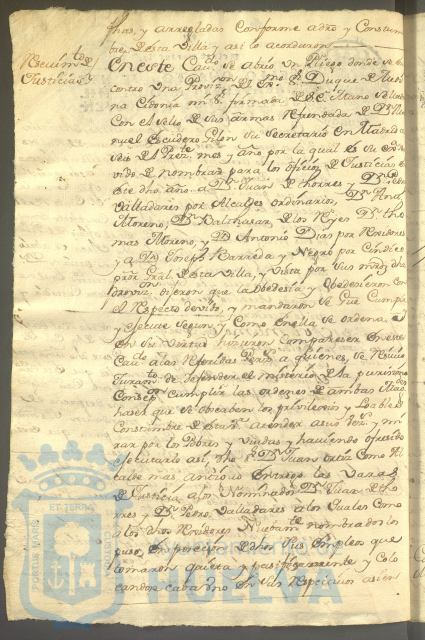 fhas, y arregladas conforme a dro y Constum
bre desta Villa y asi lo acordaron
Recivimto de
Justicias
En este Cavdo se abrio un Pliego donde se en
contro una Provizon del Exmo Sr Duque de Medi
na Cidonia mi Sr firmada de S.E.
Con el sello de sus armas Refrendada de Dn Ma
nuel Escudero Gilon su Secretario en Madrid a
seis del Prete mes y año por la qual se ha ser
vido de nombrar para los oficios de Justicias
este dho año a Dn Juan de thorres y Dn Pedro
Valladares por Alcaldes ordinarios, Dn Anto
Moreno, Dn Balthasar de los Reyes Dn tho
mas Moreno, y Dn Antonio Dias por Rexidores
y a Dn Joseph Barreda y Negro por Sindico
pror Gral desta Villa, y vista por sus mrds dha
provizon dijeron que la obedesia y obedecieron con
el Respecto devido, y mandaron se Gue Cumpl
y execute segun y Como en ella se ordena, e
en su virtud hizieron compareser en este
Cavdo a las Referidas Perss a quienes, se Recivio
Juramto de defender el misterio de la purissma
Consepon Cumplir las ordenes de ambas Magdes
haser que se observen los privilexios y Loables
Constumbres desta va atender a su vezo y mi
rar por los Pobres y Viudas y haviendo ofresido
executarlo asi, Dho Sr Dn Juan como Al
calde mas antiguo Entrego las Varas
de Justicia a los Nominados Dn Juan de tho
rres y Dn Pedro Valladares a los quales como
a los dhos Rexidores Nuebamte nombrados los
puso en posesion de dhos sus Empleos que
tomaron quieta y pasificamente y colo
candose cada uno en sus Respectivos asien
PORTUS MARIS
ET TERRAE
CUSTODIA
Ayuntamiento de
HUELVA